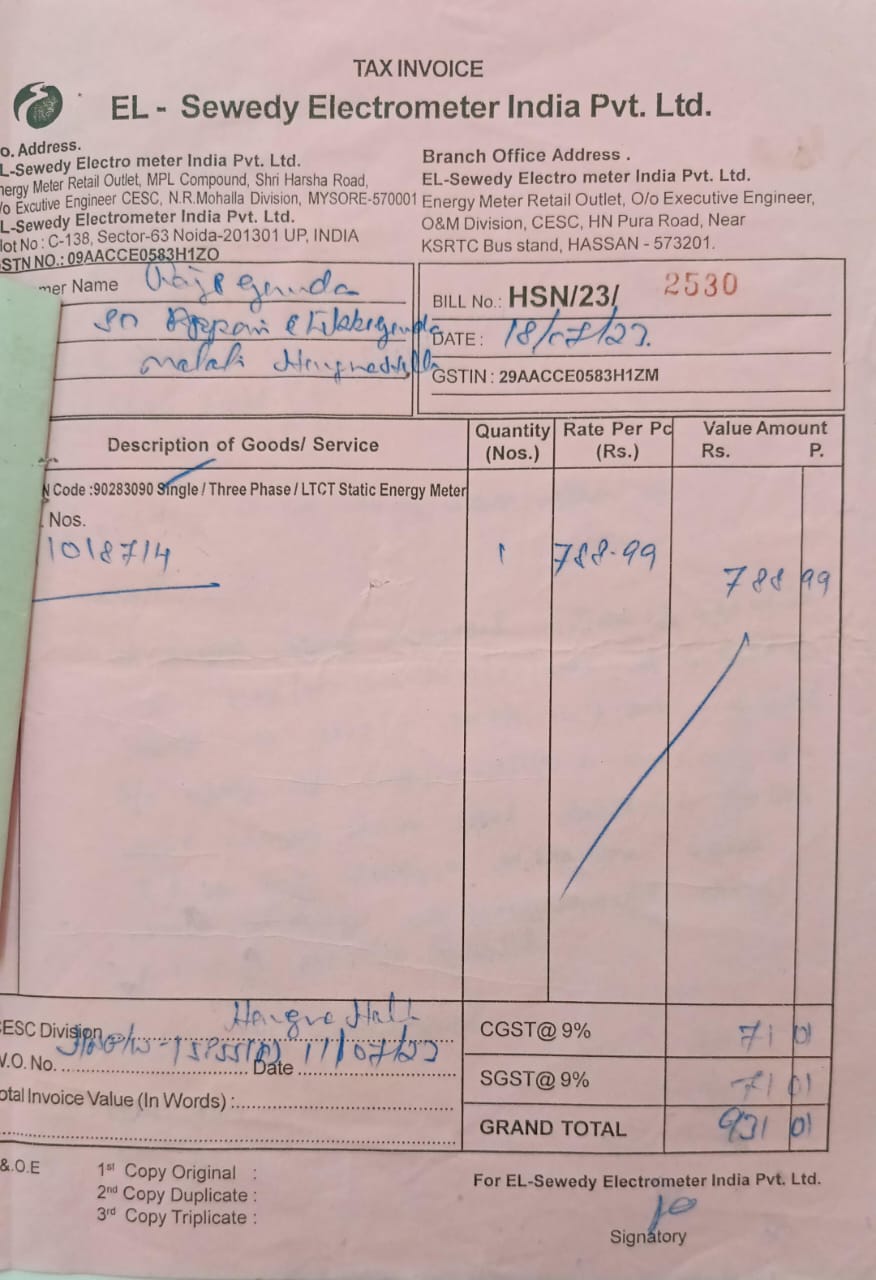 TAX INVOICE
EL - Sewedy Electrometer India Pvt. Ltd.
o. Address.
L-Sewedy Electro meter India Pvt. Ltd.
nergy Meter Retail Outlet, MPL Compound, Shri Harsha Road,
/o Excutive Engineer CESC, N.R.Mohalla Division, MYSORE-570001
L-Sewedy Electrometer India Pvt. Ltd.
lot No : C-138, Sector-63 Noida-201301 UP, INDIA
STN NO.: 09AACCE0583H1ZO
Branch Office Address .
EL-Sewedy Electro meter India Pvt. Ltd.
Energy Meter Retail Outlet, O/o Executive Engineer,
O&M Division, CESC, HN Pura Road, Near
KSRTC Bus stand, HASSAN - 573201.
mer Name
BILL No.: HSN/23/ 2530
DATE : 18/07/23.
GSTIN : 29AACCE0583H1ZM
Description of Goods/ Service
Quantity (Nos.)
Rate Per Pc (Rs.)
Value Amount
Rs. P.
N Code :90283090 Single / Three Phase / LTCT Static Energy Meter
. Nos.
1018714 1 788-99 788 99
ESC Division
V.O. No. Date 11/07/23
otal Invoice Value (In Words) :
CGST@ 9% 71 01
SGST@ 9% 71 01
GRAND TOTAL 931 01
&.O.E
1st Copy Original :
2nd Copy Duplicate :
3rd Copy Triplicate :
For EL-Sewedy Electrometer India Pvt. Ltd.
Signatory